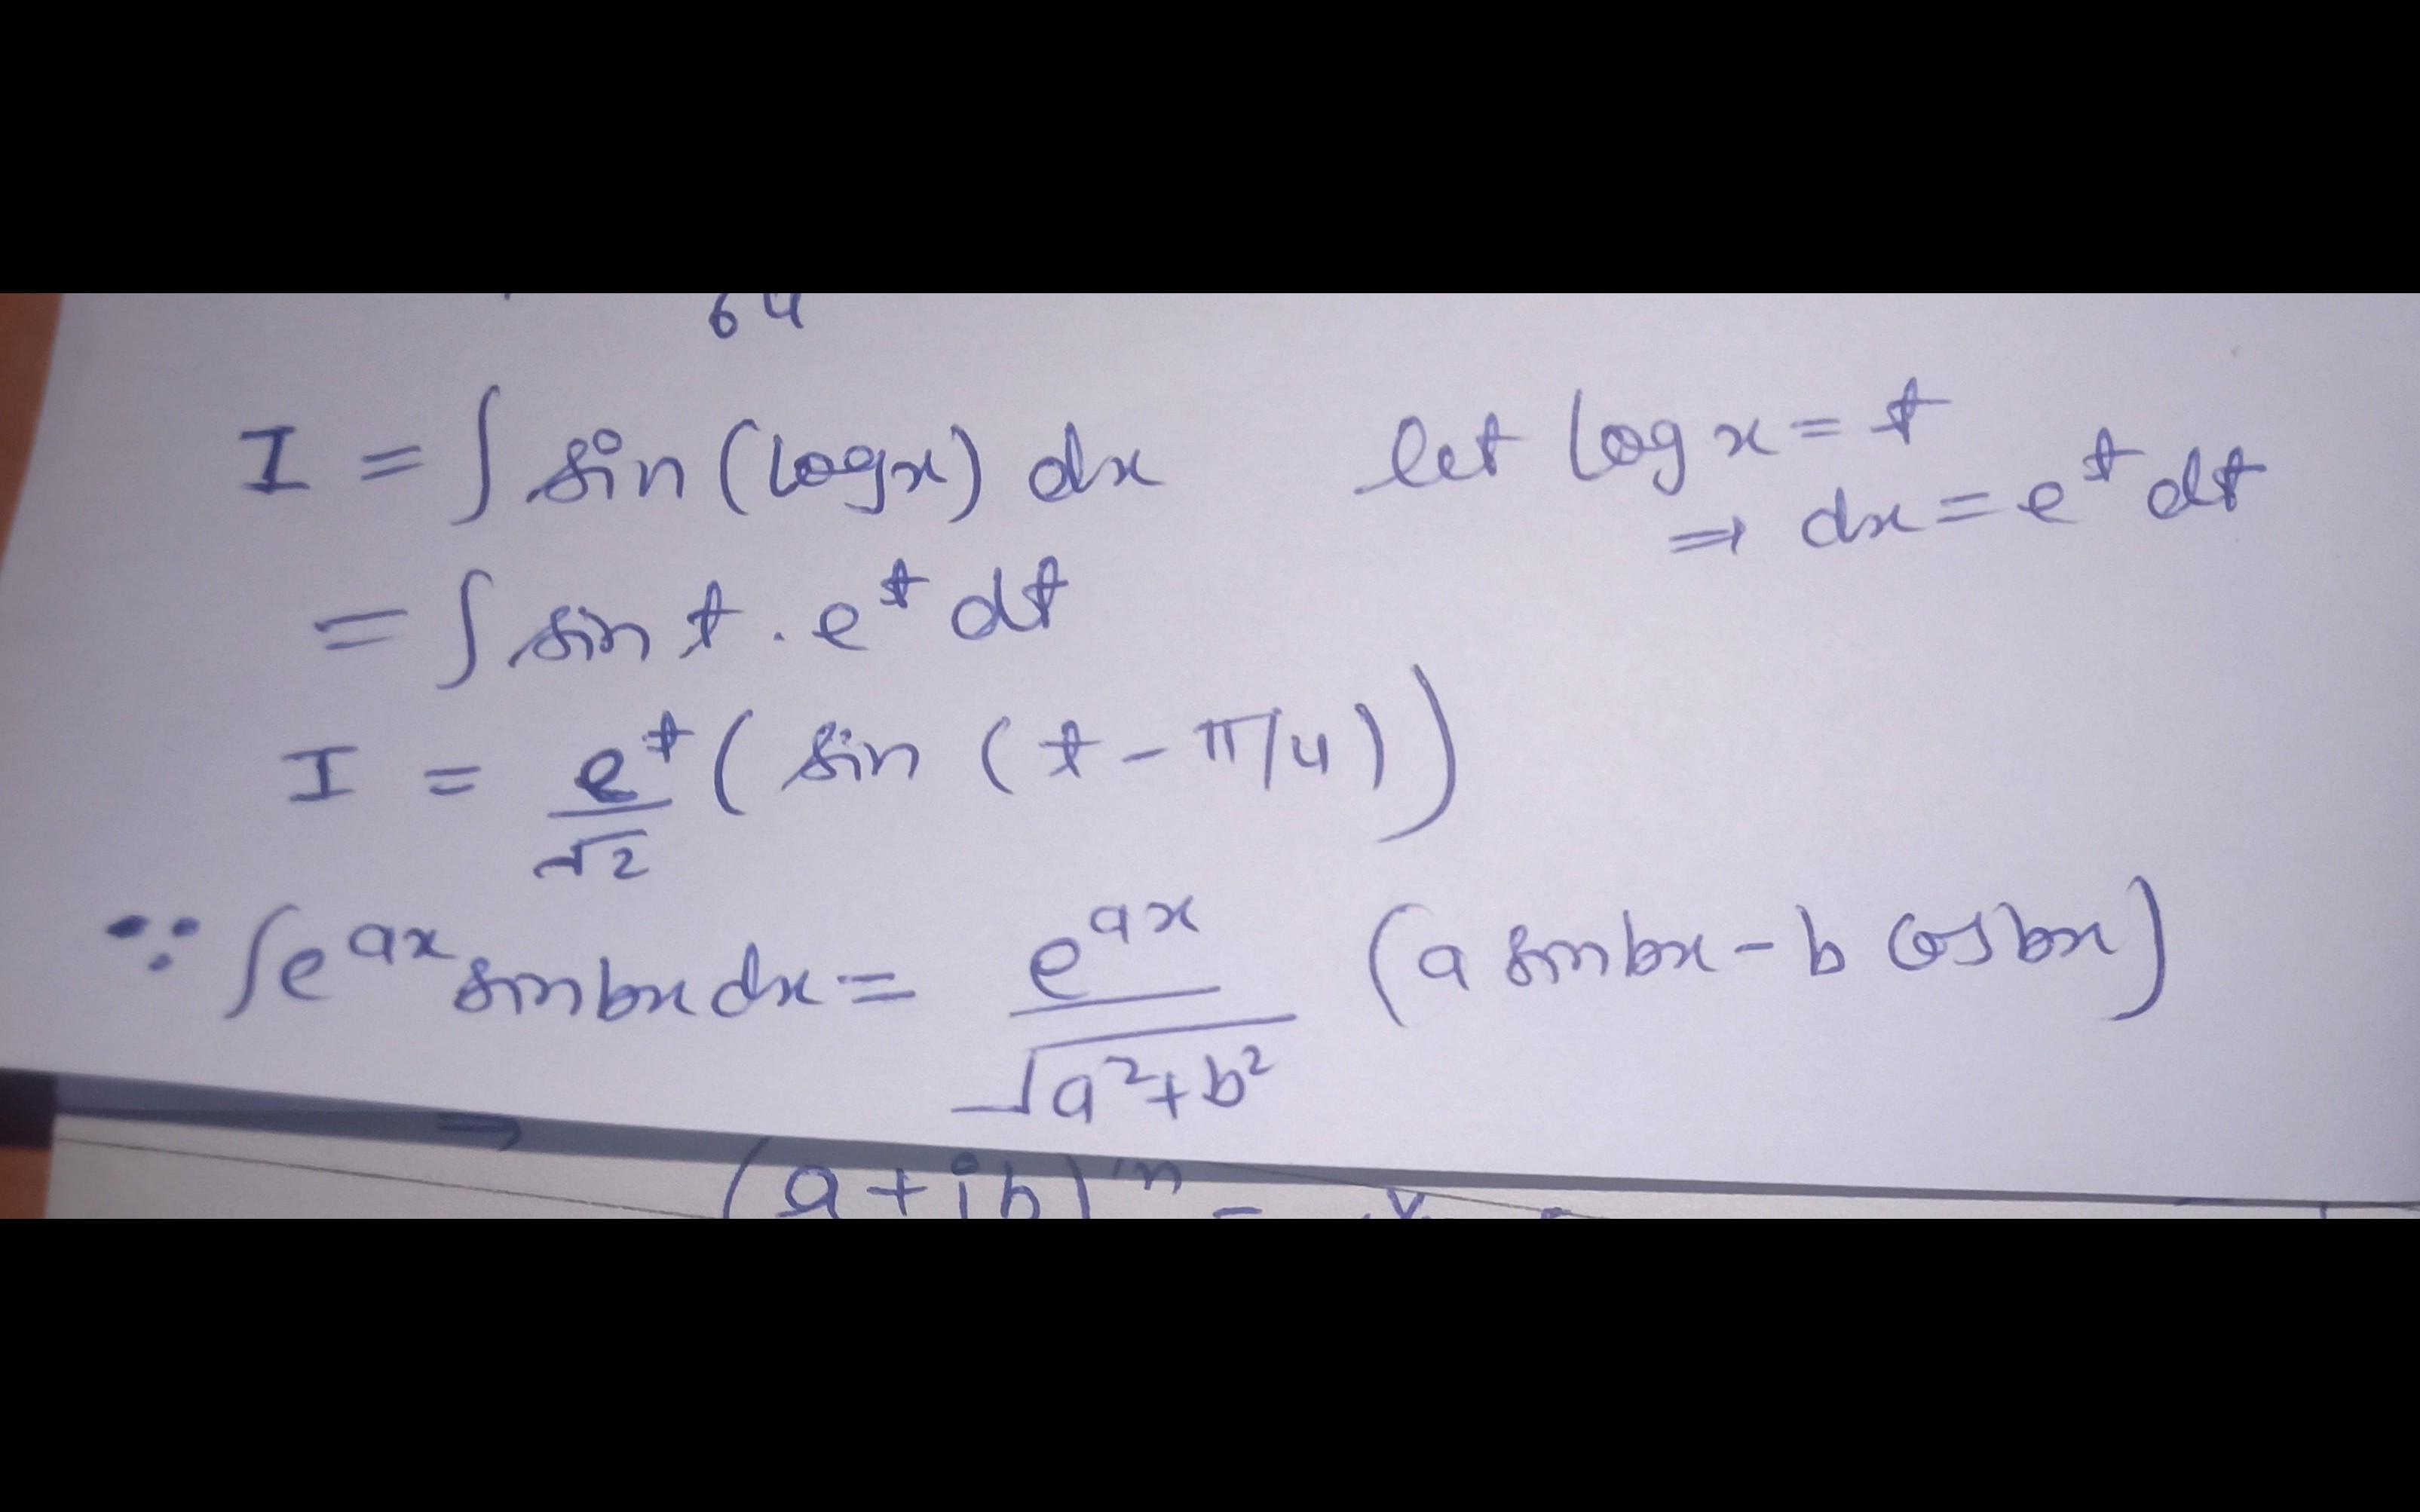 64
I = ∫ sin (log x) dx let log x = t
⇒ dx = e^t dt
= ∫ sin t . e^t dt
I = e^t/√2 ( sin (t - π/4) )
∵ ∫ e^{ax} sin bx dx = e^{ax}/√(a²+b²) (a sin bx - b cos bx)
⇒
(a + ib)^n =